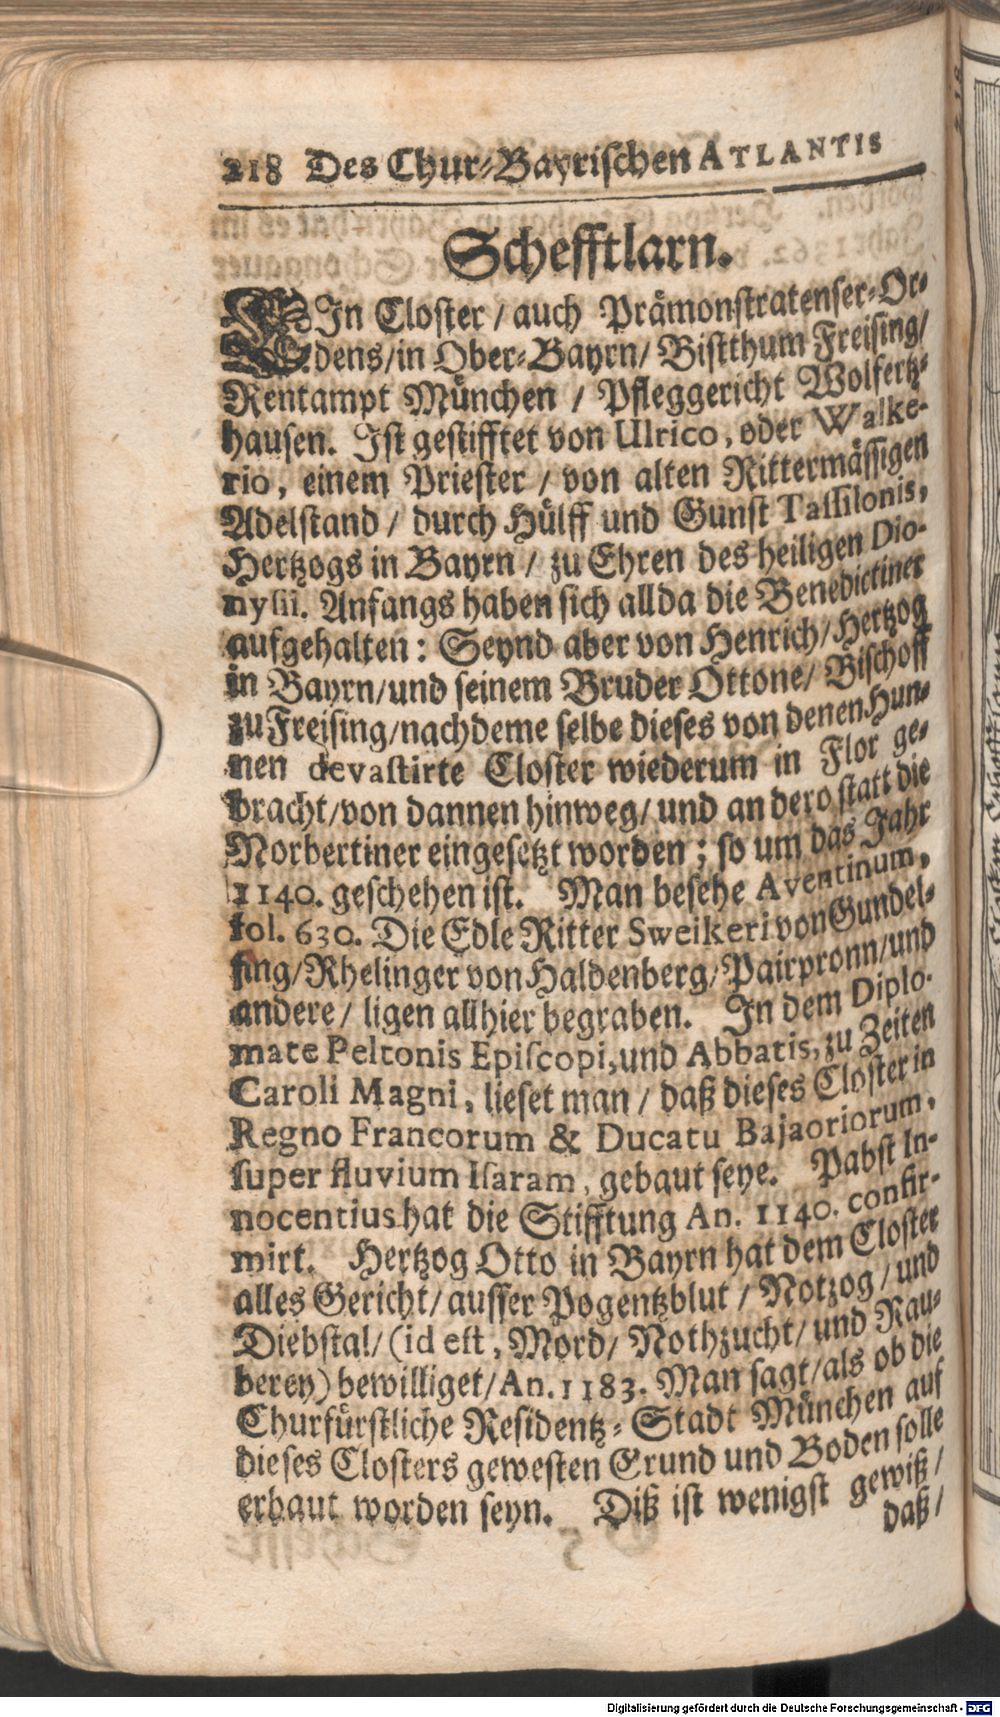 218 Des Chur-Bayrischen ATLANTIS
Schefftlarn.
EIn Closter / auch Prämonstratenser-Or-
dens / in Ober-Bayrn / Bistthum Freising /
Rentampt München / Pfleggericht Wolfertz-
hausen. Ist gestifftet von Ulrico, oder Walke-
rio, einem Priester / von alten Rittermässigen
Adelstand / durch Hülff und Gunst Tassilonis,
Hertzogs in Bayrn / zu Ehren des heiligen Dio-
nysii. Anfangs haben sich allda die Benedictiner
aufgehalten: Seynd aber von Henrich / Hertzog
in Bayrn / und seinem Bruder Ottone / Bischoff
zu Freising / nachdeme selbe dieses von denen Hun-
nen devastirte Closter wiederum in Flor ge-
bracht / von dannen hinweg / und an dero statt die
Norbertiner eingesetzt worden; so um das Jahr
1140. geschehen ist. Man besehe Aventinum,
fol. 630. Die Edle Ritter Sweikeri von Gundel-
fing / Rhelinger von Haldenberg / Pairpronn / und
andere / ligen allhier begraben. In dem Diplo-
mate Peltonis Episcopi, und Abbatis, zu Zeiten
Caroli Magni, lieset man / daß dieses Closter in
Regno Francorum & Ducatu Bajaoriorum,
super fluvium Isaram, gebaut seye. Pabst In-
nocentius hat die Stifftung An. 1140. confir-
mirt. Hertzog Otto in Bayrn hat dem Closter
alles Gericht / ausser Pogentzblut / Notzog / und
Diebstal / (id est, Mord / Nothzucht / und Rau-
berey) bewilliget / An. 1183. Man sagt / als ob die
Churfürstliche Residentz-Stadt München auf
dieses Closters gewesten Grund und Boden solle
erbaut worden seyn. Diß ist wenigst gewiß /
daß /
Digitalisierung gefördert durch die Deutsche Forschungsgemeinschaft - DFG